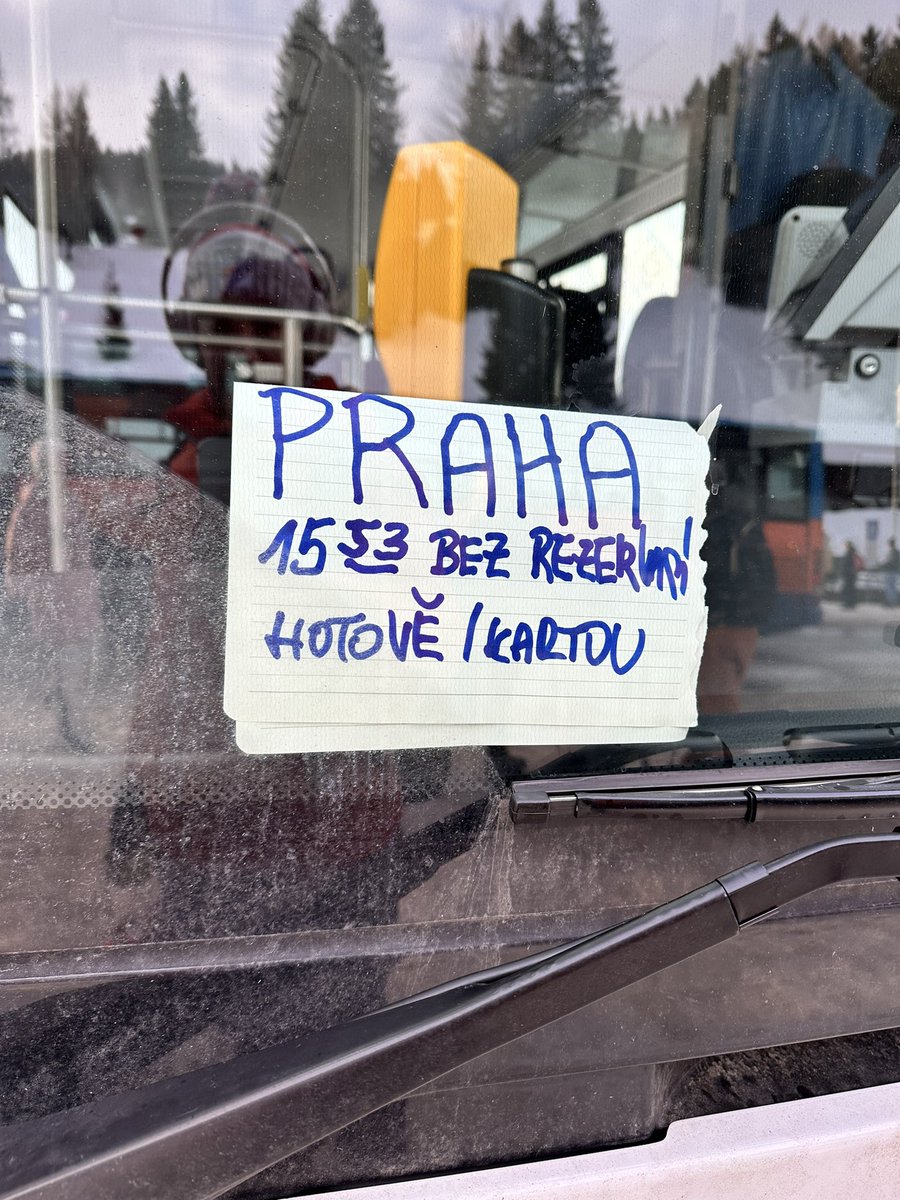 PRAHA
15 53 BEZ REZERVACÍ
HOTOVĚ / KARTOU